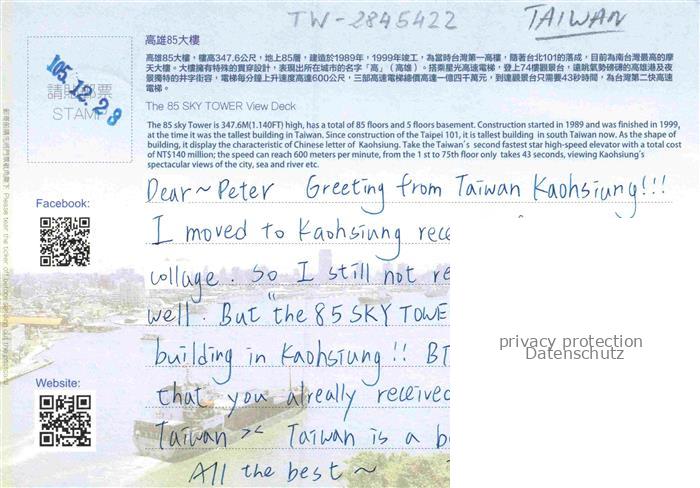 TW-2845422 TAIWAN
高雄85大樓
高雄85大樓，樓高347.6公尺，地上85層，建造於1989年，1999年竣工，為當時台灣第一高樓，隨著台北101的落成，目前為南台灣最高的摩
天大樓。大樓擁有特殊的貫穿設計，表現出所在城市的名字「高」（高雄）。搭乘星光高速電梯，登上74樓觀景台，遠眺氣勢磅礡的高雄港及夜
景獨特的井字街容，電梯每分鐘上升速度高達600公尺，三部高速電梯總價高達一億四千萬元，到達觀景台只需要43秒時間，為台灣第二快高速
電梯。
105.12.28
請貼郵票
STAMP
The 85 SKY TOWER View Deck
The 85 sky Tower is 347.6M(1.140FT) high, has a total of 85 floors and 5 floors basement. Construction started in 1989 and was finished in 1999,
at the time it was the tallest building in Taiwan. Since construction of the Taipei 101, it is tallest building in south Taiwan now. As the shape of
building, it display the characteristic of Chinese letter of Kaohsiung. Take the Taiwan's second fastest star high-speed elevator with a total cost
of NT$140 million; the speed can reach 600 meters per minute, from the 1 st to 75th floor only takes 43 seconds, viewing Kaohsiung's
spectacular views of the city, sea and river etc.
Dear~Peter Greeting from Taiwan Kaohsiung!!!
I moved to Kaohsiung rece
collage. So I still not re
well. But "the 85 SKY TOWE
building in Kaohsiung!! BT
that you already received
Taiwan >< Taiwan is a b
All the best ~
Facebook:
Website:
privacy protection
Datenschutz